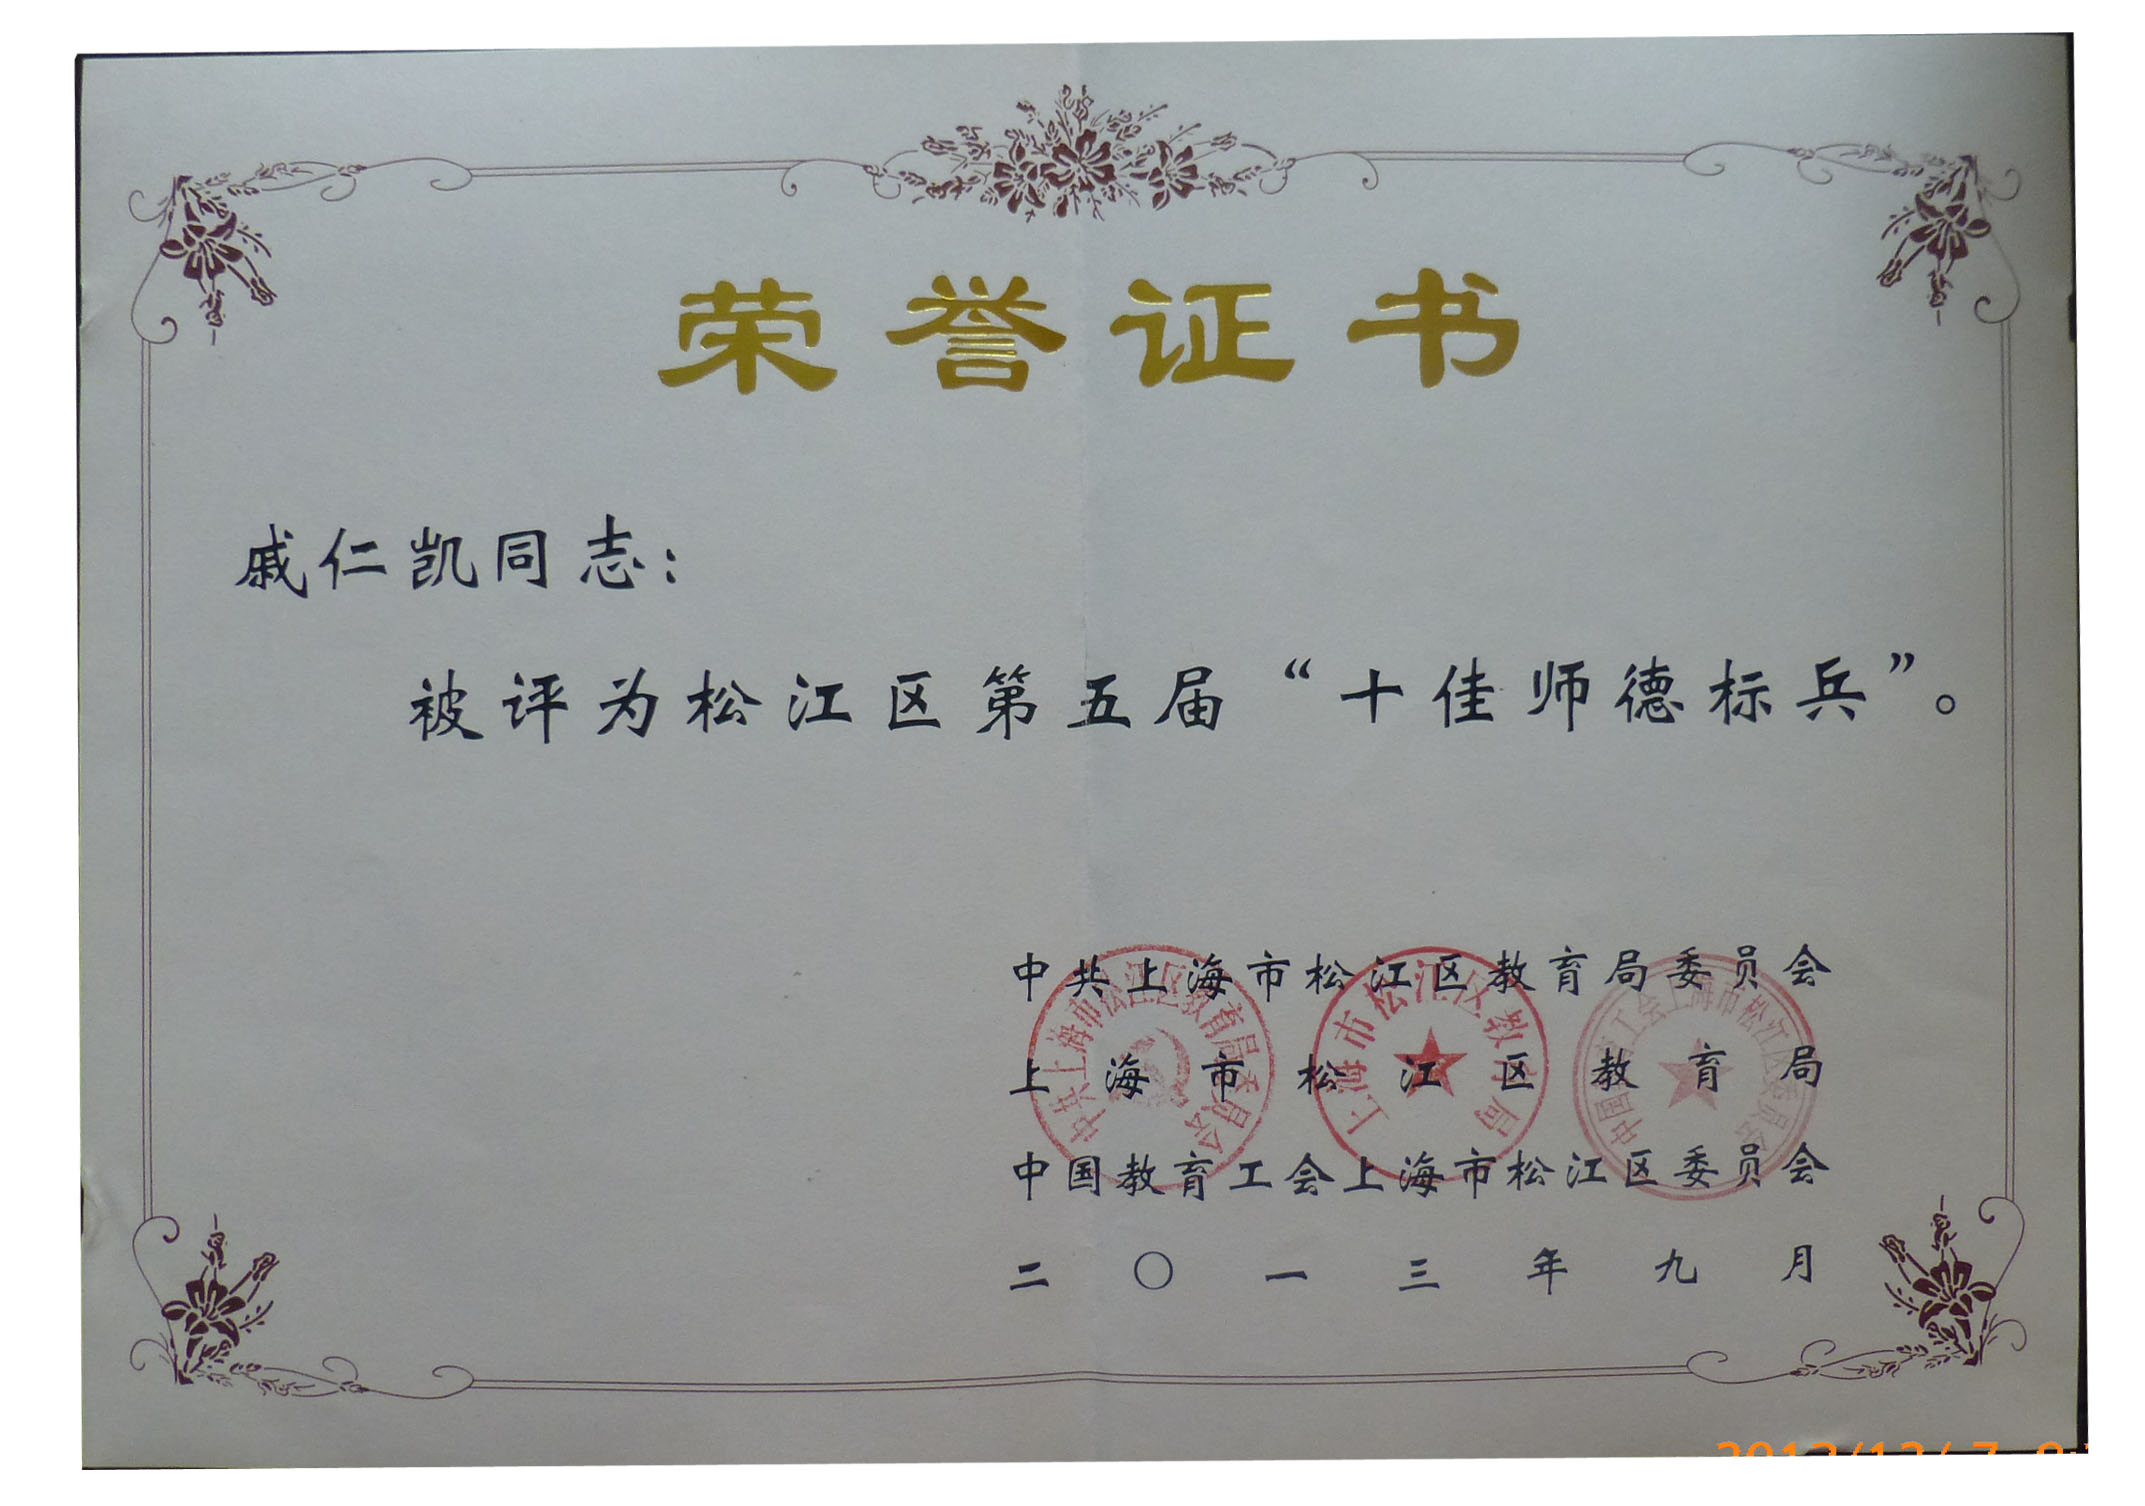 荣誉证书
戚仁凯同志：
被评为松江区第五届“十佳师德标兵”。
中共上海市松江区教育局委员会
上海市松江区教育局
中国教育工会上海市松江区委员会
二〇一三年九月
中共上海市松江区教育局委员会
上海市松江区教育局
中国教育工会上海市松江区委员会